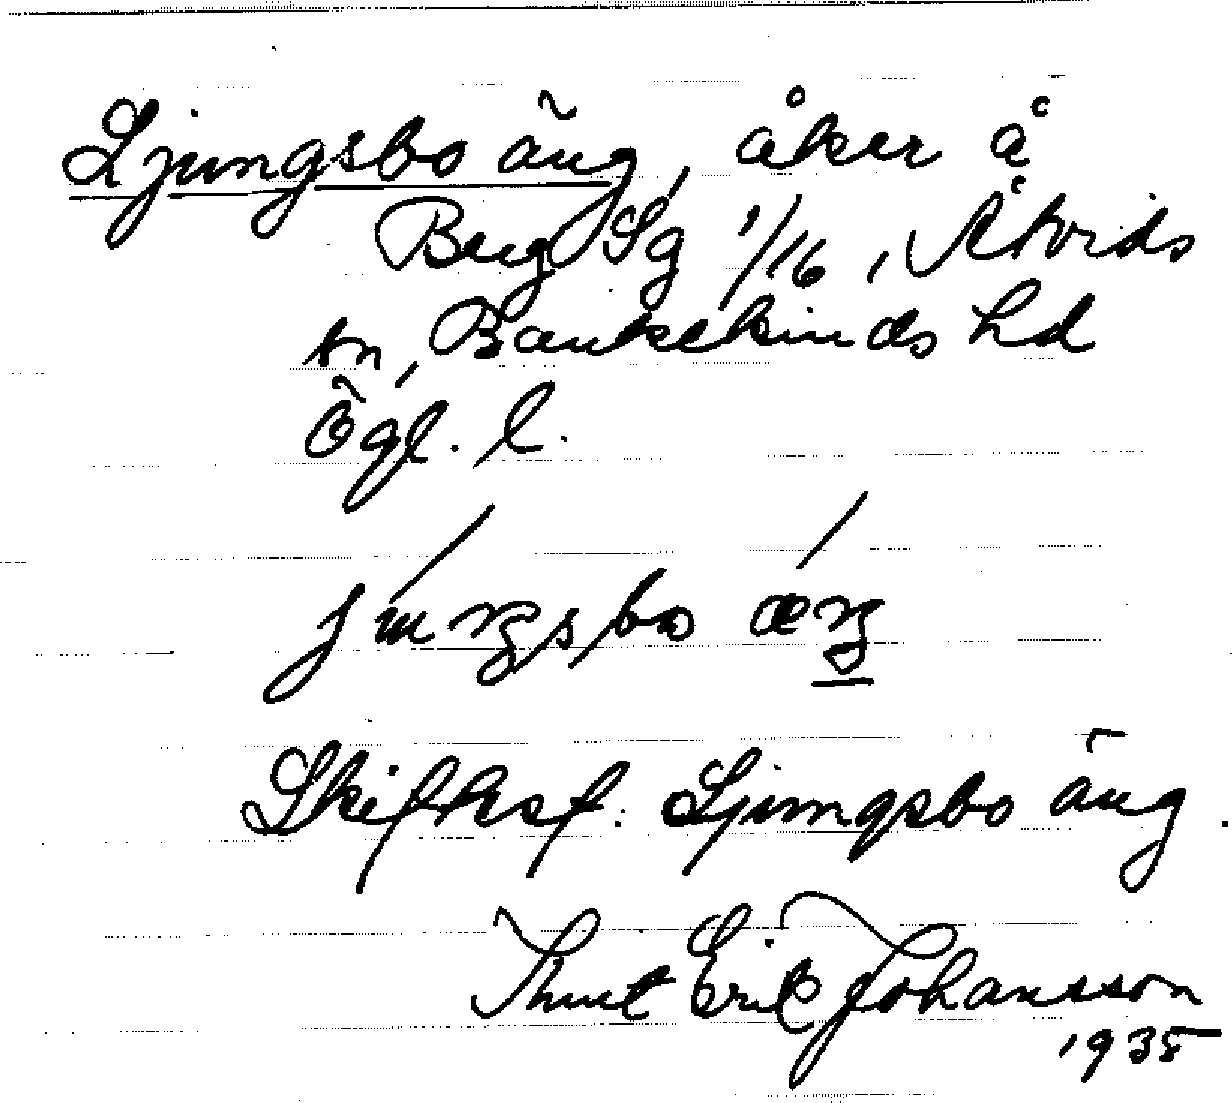 Ljungsbo äng, åker å
Berg Sg 1/16, Åtvids
sn, Bankekinds hd
Ögl. l.
Skifteskf. Ljungsbo äng.
Erik Johansson
1935